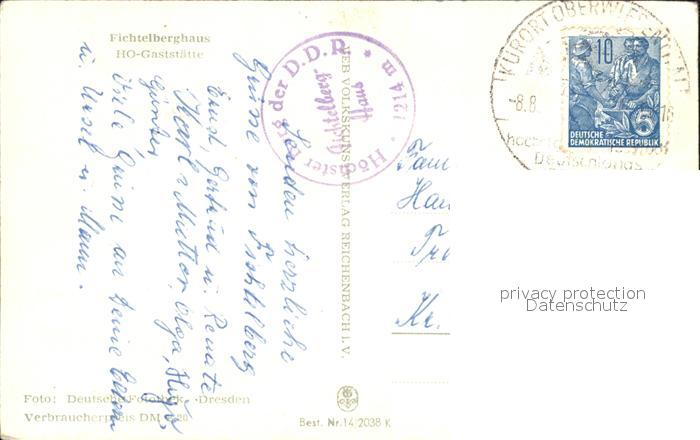 Fichtelberghaus
HO-Gaststätte
Senden herzliche
Grüsse von Fichtelberg
Ernst, Gertrud u. Renate
Karl, Mutter, Olga, Hugo,
Günter,
Viele Grüsse an Deine Eltern
u. Ursel u. Mann.
Höchster Berg der D.D.R. * 1214 m *
Fichtelberg-
Haus
VEB VOLKSKUNSTVERLAG REICHENBACH I. V.
KURORT OBERWIESENTHAL
-8.8.
Deutschlands
10
5
DEUTSCHE
DEMOKRATISCHE REPUBLIK
Fam
Hau
Kr.
privacy protection
Datenschutz
Foto: Deutsche Fotothek, Dresden
Verbraucherpreis DM 0,20
Best. Nr. 14/2038 K